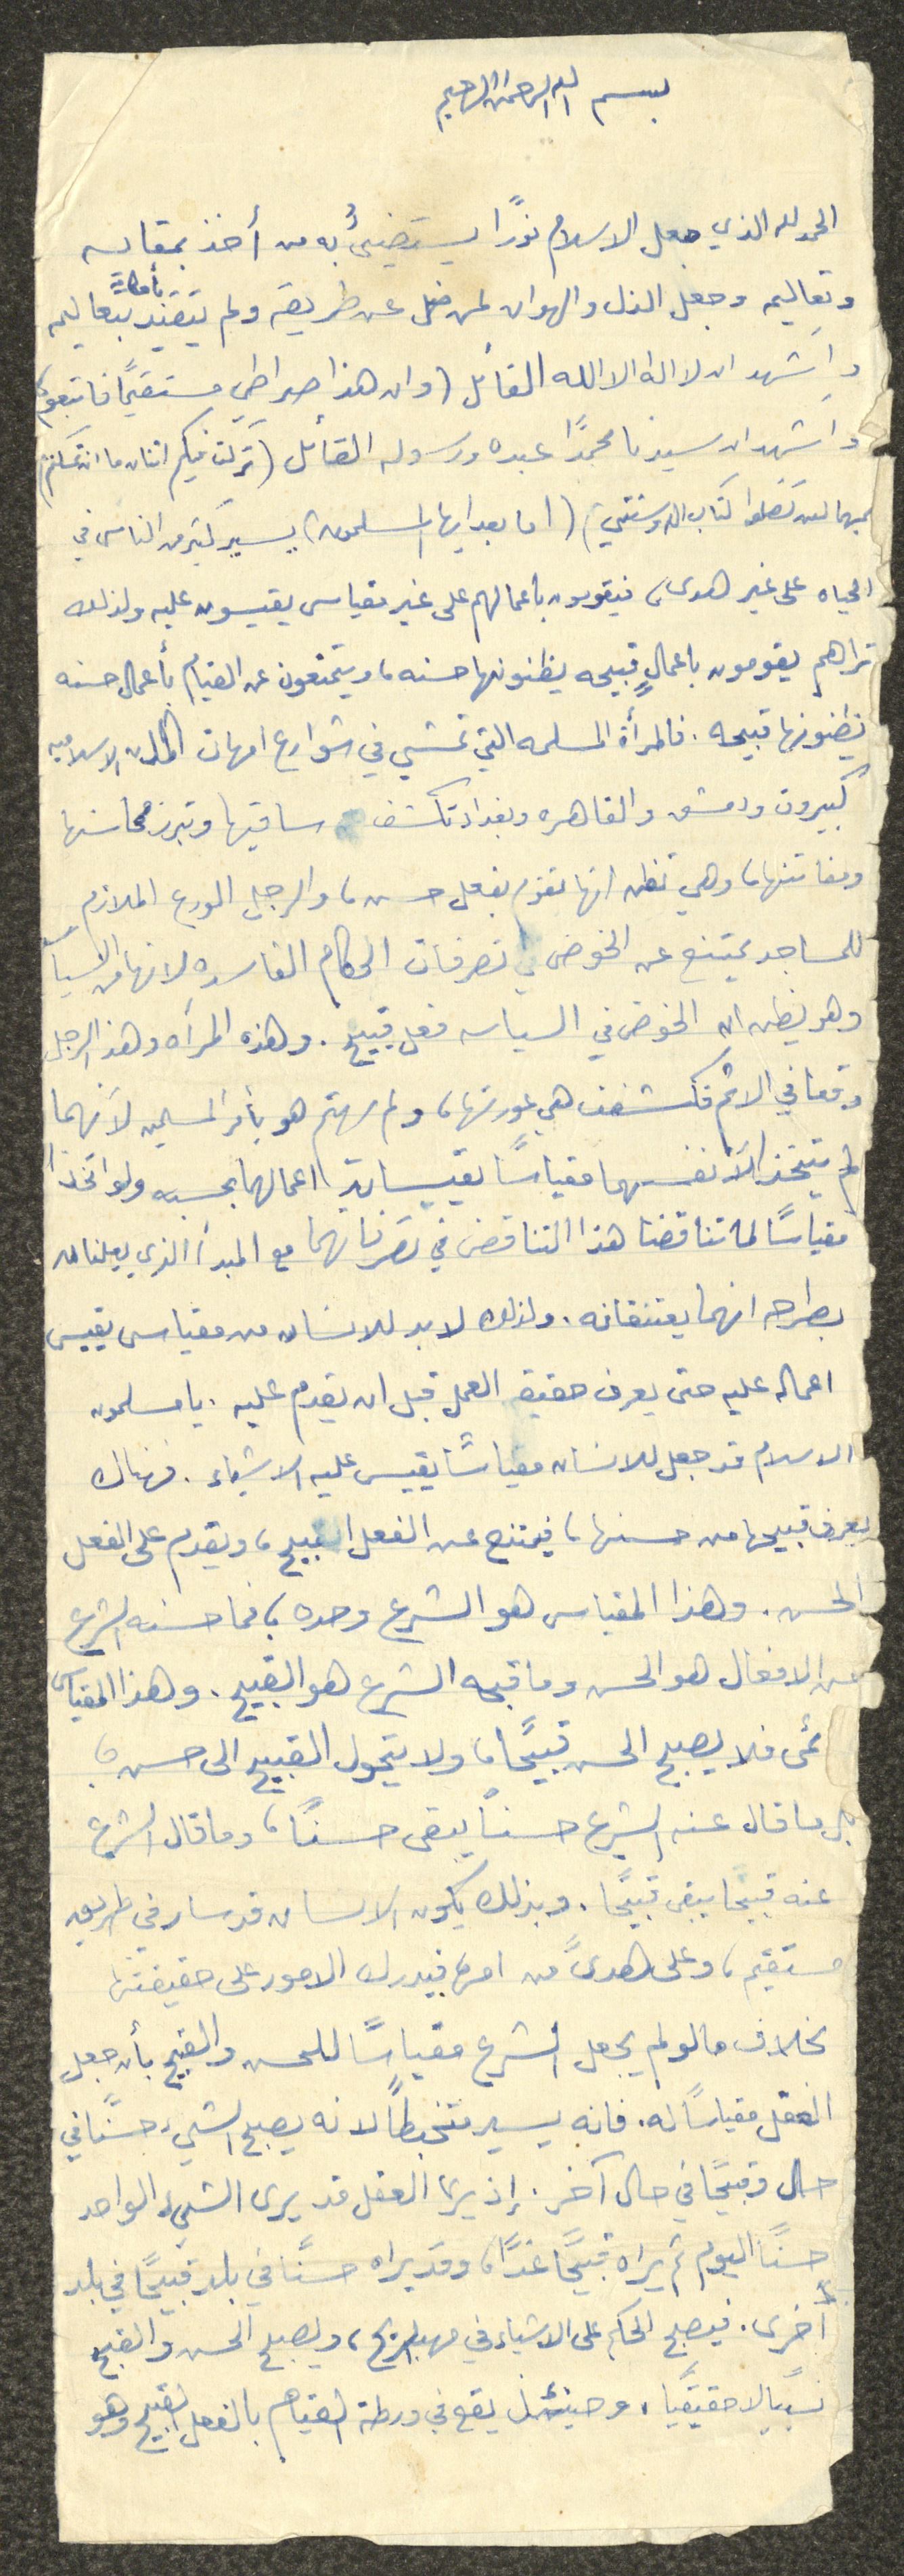 بسم الله الرحمن الرحيم
الحمد لله الذي جعل الاسلام نورًا يستضيئُ به من أخذ بمقاسه
وتعاليمه وجعل الذل والهوان لمن ضل عن طريقه ولم يتقيد بتعاليمه
وأشهد ان لا اله الا الله القائل (وان هذا صراطي مستقيمًا فاتبعوه)
واشهد ان سيدنا محمدًا عبده ورسوله القائل (تركت فيكم اثنان ما ان تمسكتم
بهما لن تضلوا كتاب الله وسنتي) (اما بعد ايها المسلمون) يسير كثير من الناس في
الحياه على غير هدى، فيقومون بأعمالهم على غير مقياس يقيسون عليه ولذلك
تراهم يقومون باعمالٍ قبيحه يظنونها حسنه، ويتمنعون عن القيام بأعمال حسنه
يظنونها قبيحه. فالمرأة المسلمه التي تمشي في شوارع امهات المدن الاسلاميه
كبيروت ودمشق والقاهره وبغداد تكشف ساقيها وتبرز محاسنها
ومفاتنها، وهي تظن انها تقوم بفعل حسن، والرجل الورع الملازم
للمساجد يمتنع عن الخوض في تصرفات الحكام الفاسده لانها من السياسه
وهو يظن ان الخوض في السياسه فعل قبيح. وهذه المرأه وهذا الرجل
وقعا في الاثم فكشفت هي عورتها، ولم يهتم هو بأمر المسلمين لأنهما
لم يتخذا لأنفسهما مقياسًا يقيسان اعمالهما بحسبه ولو اتخذا
مقياسًا لما تناقضا هذا التناقض في تصرفاتهما مع المبدأ الذي يعلنان
بصراحه انهما يعتنقانه. ولذلك لا بد للانسان من مقياس يقيس
اعماله عليه حتى يعرف حقيقة العمل قبل ان يقدم عليه. يا مسلمون
الاسلام قد جعل للانسان مقياسًا يقيس عليه الاشياء. فهناك
يعرف قبيحها من حسنها، فيمتنع عن الفعل القبيح، ويقدم على الفعل
الحسن. وهذا المقياس هو الشرع وحده، فما حسنه الشرع
من الافعال هو الحسن وما قبحه الشرع هو القبيح. وهذا المقياس
فلا يصبح الحسن قبيحًا، ولا يتحول القبيح الى حسن،
بل ما قال عنه الشرع حسنًا يبقى حسنًا، وما قال الشرع
عنه قبيحًا يبقى قبيحًا. وبذلك يكون الانسان قد سار في طريق
مستقيم، وعلى هدىً من امره فيدرك الامور على حقيقتها
بخلاف ما لو لم يجعل الشرع مقياسًا للحسن والقبح بأن جعل
العقل مقياسًا له. فانه يسير متخبطًا لانه يصبح الشيء حسنًا في
حال وقبيحًا في حال آخر. إذ يرى العقل قد يرى الشيء الواحد
حسنًا اليوم ثم يراه قبيحًا غدًا، وقد يراه حسنًا في بلد قبيحًا في بلد
أخرى. فيصبح الحكم على الاشياء في مهب الريح، ويصبح الحسن والقبح
نسبيًا لا حقيقيًا، وحينئذ يقع في ورطة القيام بالفعل القبيح وهو